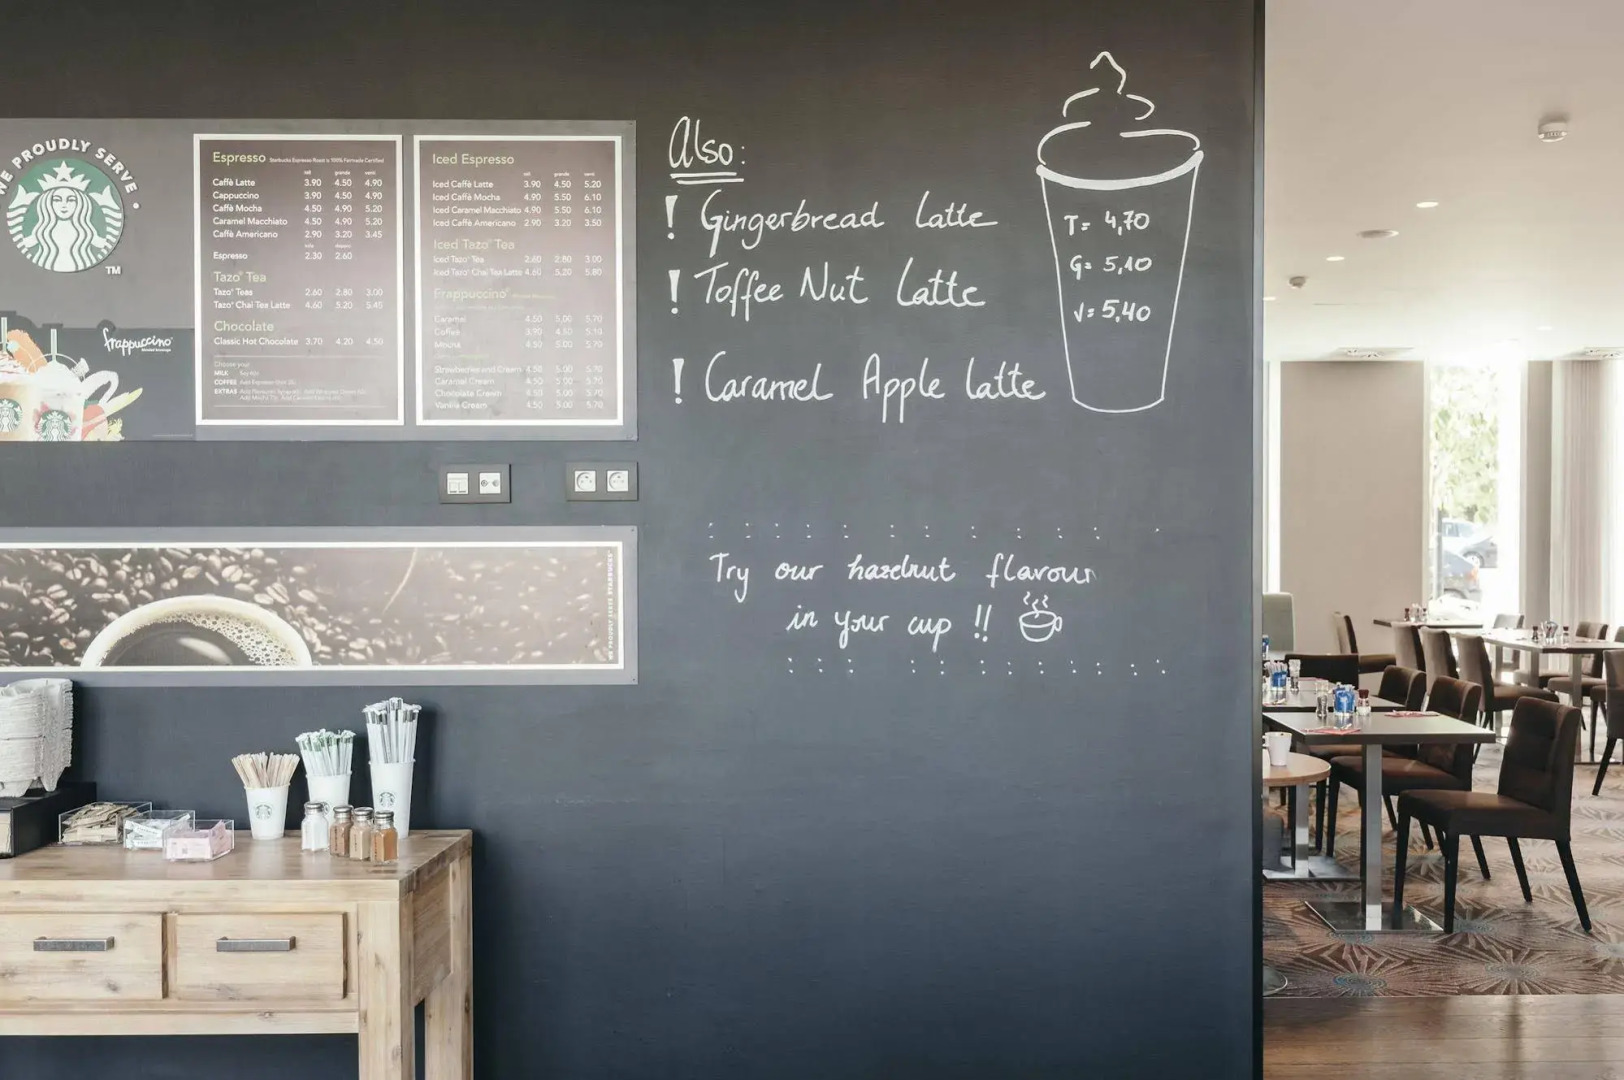 WE PROUDLY SERVE
TM
frappuccino
Espresso Starbucks Espresso Roast is 100% Fairtrade Certified
tall grande venti
Caffè Latte 3.90 4.50 4.90
Cappuccino 3.90 4.50 4.90
Caffè Mocha 4.50 4.90 5.20
Caramel Macchiato 4.50 4.90 5.20
Caffè Americano 2.90 3.20 3.45
Espresso 2.30 2.60
Tazo® Tea
Tazo® Teas 2.60 2.80 3.00
Tazo® Chai Tea Latte 4.60 5.20 5.45
Chocolate
Classic Hot Chocolate 3.70 4.20 4.50
MILK
COFFEE
EXTRAS
Iced Espresso
tall grande venti
Iced Caffè Latte 3.90 4.50 5.20
Iced Caffè Mocha 4.90 5.50 6.10
Iced Caramel Macchiato 4.90 5.50 6.10
Iced Caffè Americano 2.90 3.20 3.50
Iced Tazo® Tea
Iced Tazo® Tea 2.60 2.80 3.00
Iced Tazo® Chai Tea Latte 4.60 5.20 5.80
Frappuccino®
Caramel 4.50 5.00 5.70
Coffee 3.90 4.50 5.10
Mocha 4.50 5.00 5.70
Strawberries and Cream 4.50 5.00 5.70
Caramel Cream 4.50 5.00 5.70
Chocolate Cream 4.50 5.00 5.70
Vanilla Cream 4.50 5.00 5.70
Also:
! Gingerbread Latte
! Toffee Nut Latte
! Caramel Apple Latte
T= 4,70
G= 5,10
V= 5,40
Try our hazelnut flavour
in your cup !!
WE PROUDLY SERVE STARBUCKS®